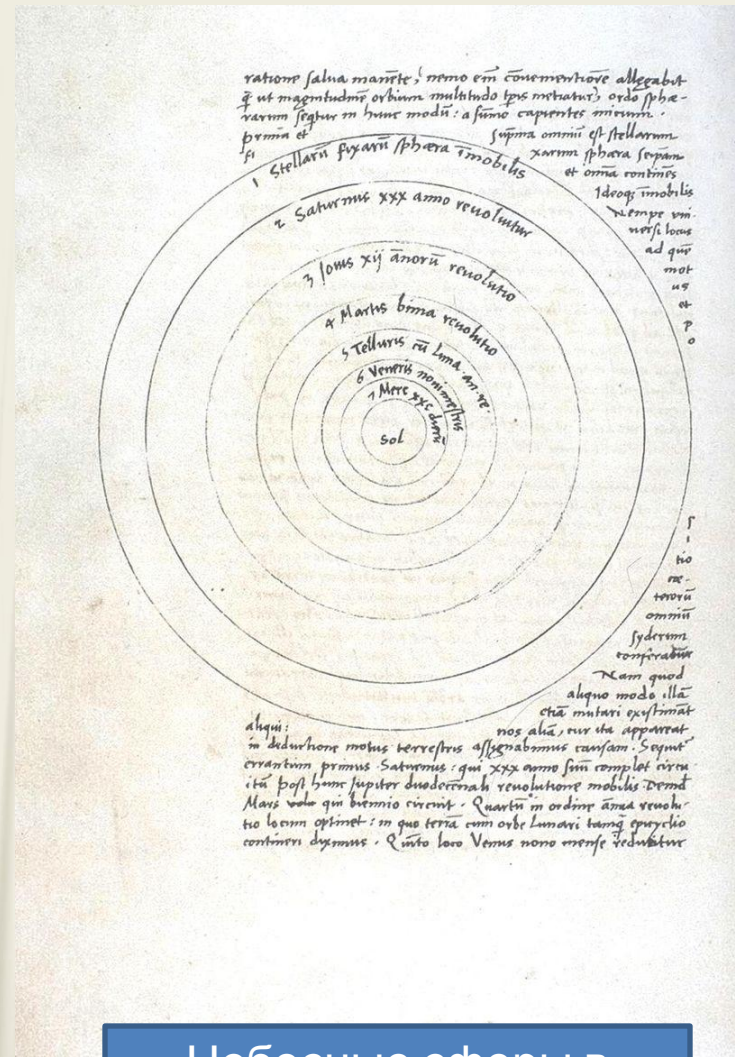 ratione salva manēte, nemo em̄ convenientiorē allegabit
q̄ ut magnitudinē orbium multitudo tp̄is metiatur, ordo sphæ-
rarum seq̄tur in hunc modū: a sum̄o capientes initium.
prima et sup̄ma omniū est stellarum
fi xarum sphæra seipsam
et om̄ia continēs
Ideoq; im̄obilis
Nempe uni
versi locus
ad quē
mot
us
et
p
o
1 Stellarū fixarū sphæra im̄obilis
2 Saturnus xxx anno revolvitur
3 Jovis xij an̄orū revolutio
4 Martis bima revolutio
5 Telluris cū Luna an. re.
6 Veneris nonimestris
7 Merc xxc dierū
Sol
s
i
tio
cæ-
terorū
omniū
syderum
conferatur
Nam quod
aliquo modo illā
etiā mutari existimāt
aliqui: nos aliā, cur ita appareat
in deductione motus terrestris assignabimus causam. Sequit̄
errantium primus Saturnus: qui xxx anno suū complet circu
itū post hunc Jupiter duodecennali revolutione mobilis. Demd̄
Mars qui biennio circuit. Quartū in ordine an̄ua revolu-
tio locum optinet: in quo terrā cum orbe Lunari tamq̄ epicyclio
contineri diximus. Quinto loco Venus nono mense reducitur
Небесные сферы в